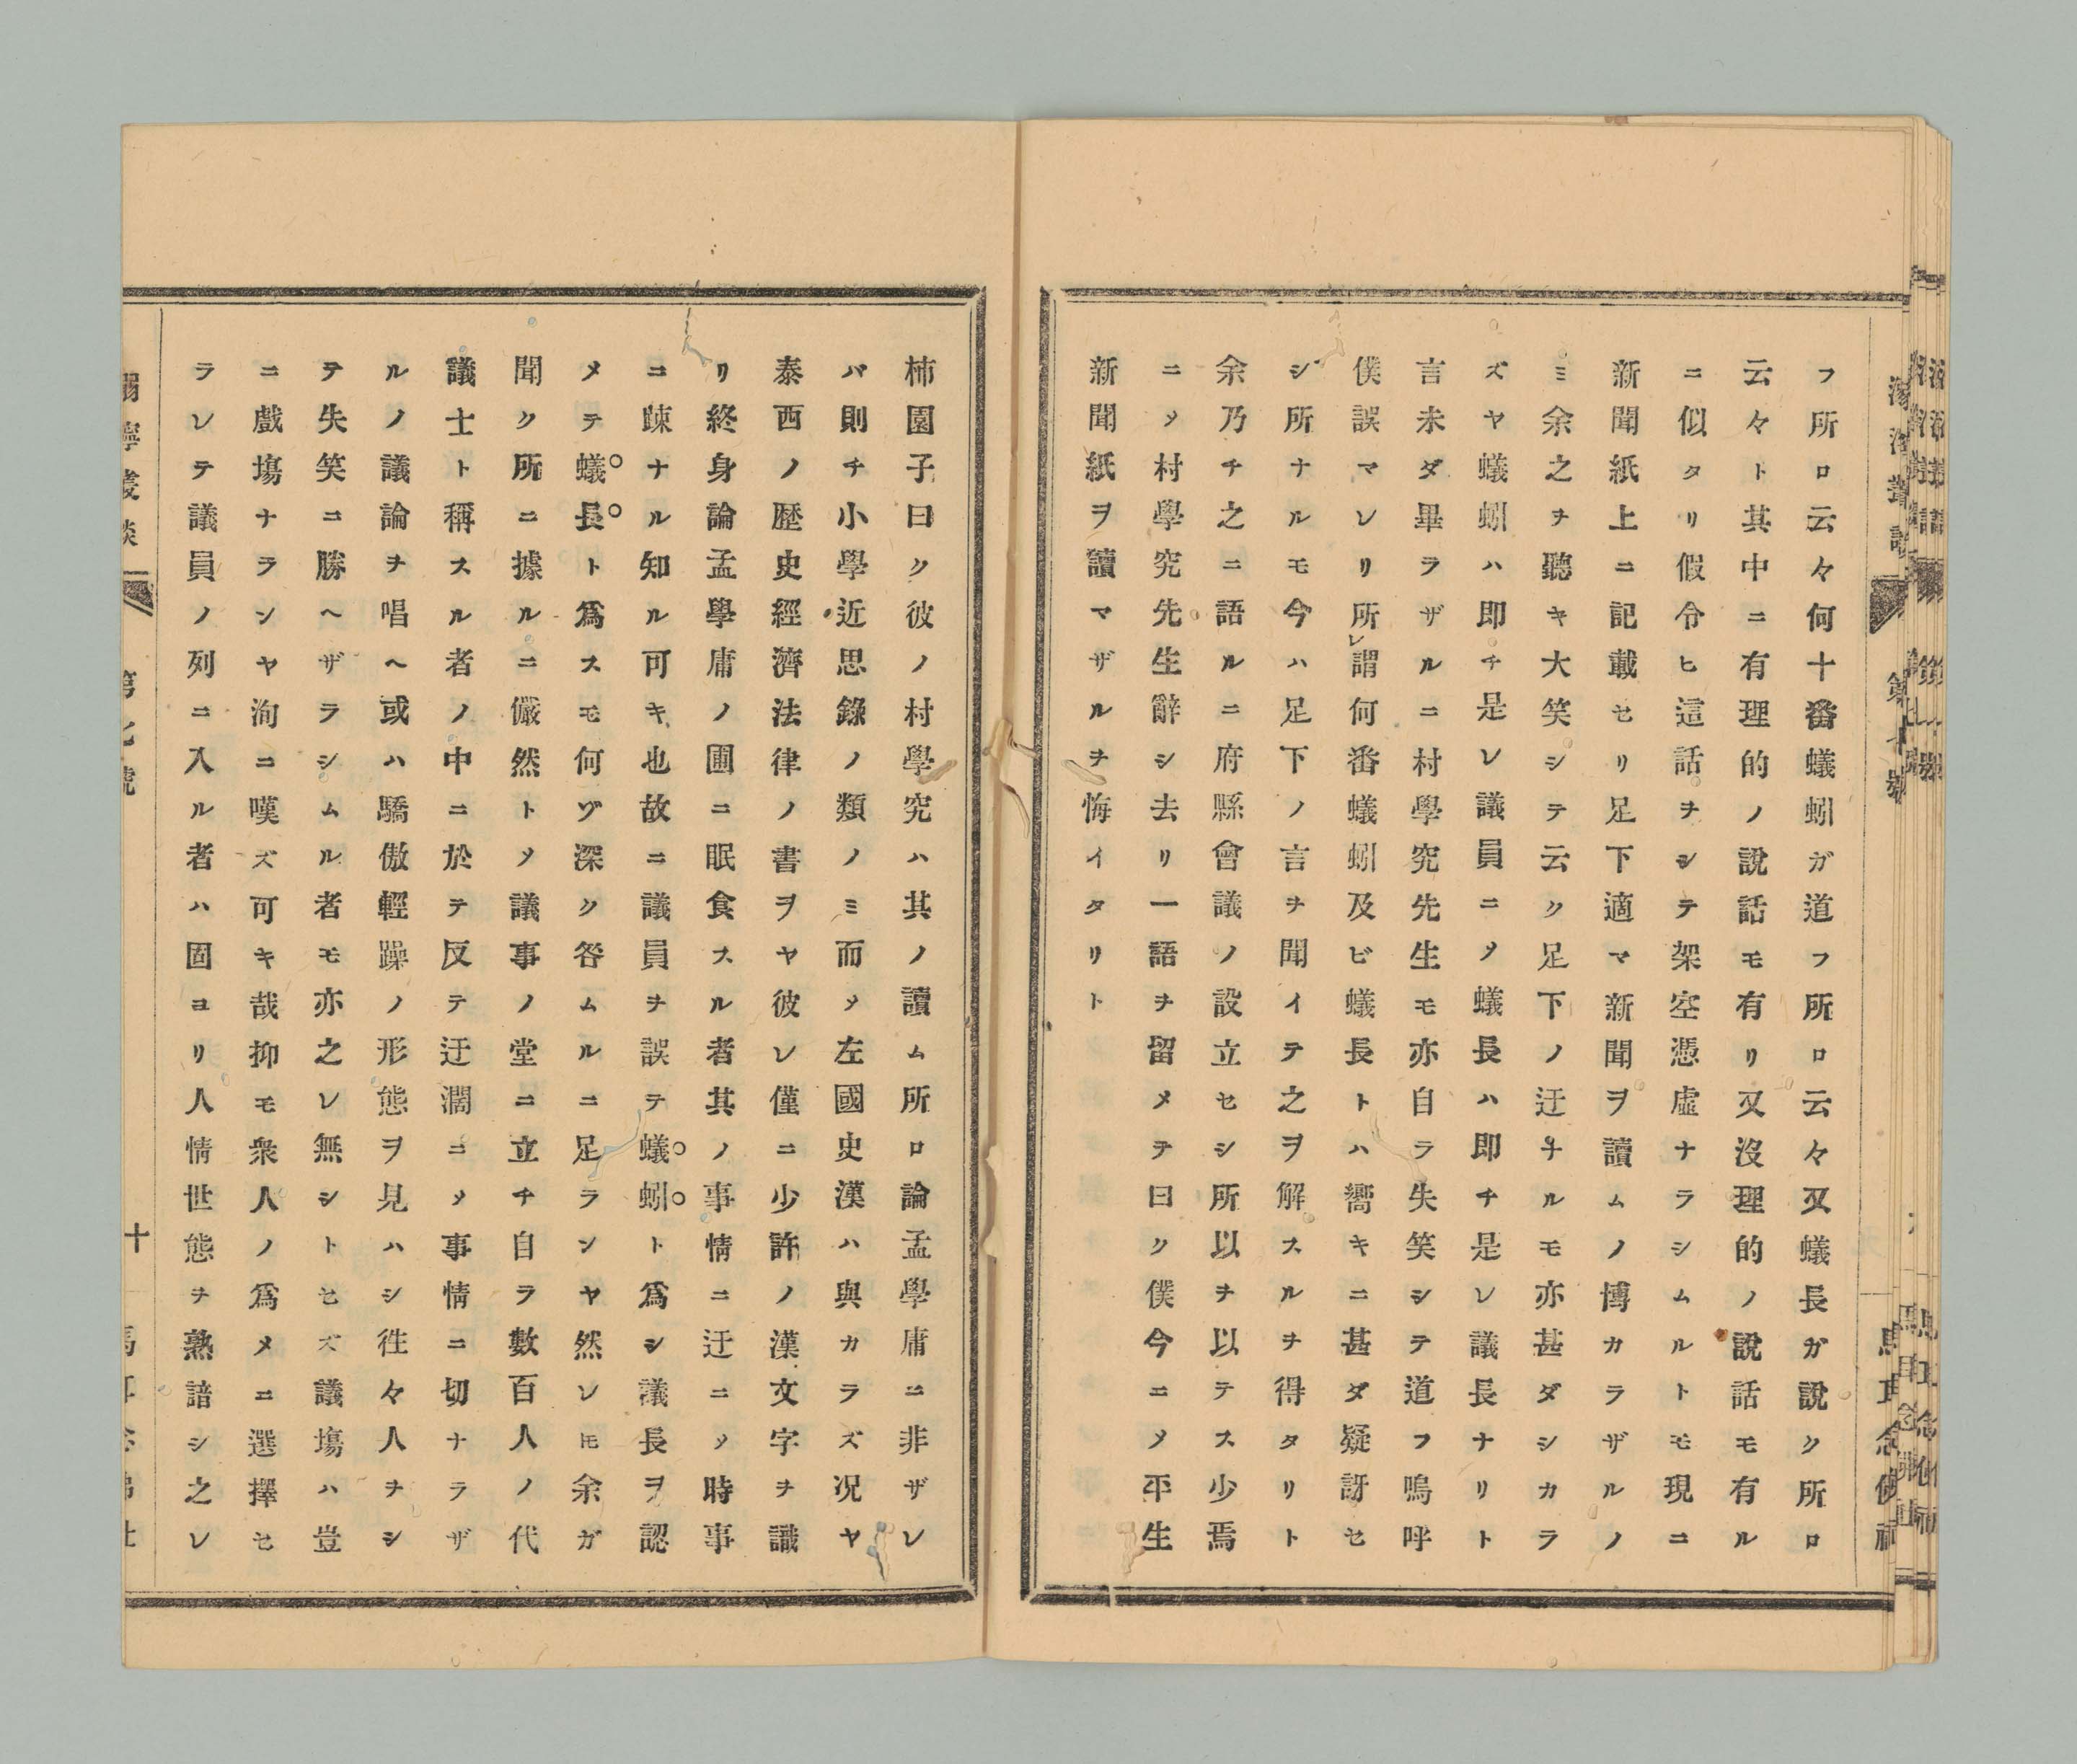 フ所ロ云々何十番蟻蚓ガ道フ所ロ云々又蟻長ガ説ク所ロ
云々ト其中ニ有理的ノ說話モ有リ又沒理的ノ說話モ有ル
ニ似タリ假令ヒ這話ヲシテ架空憑虛ナラシムルトモ現ニ
新聞紙上ニ記載セリ足下適マ新聞ヲ讀ムノ博カラザルノ
ミ余之ヲ聽キ大笑シテ云ク足下ノ迂ナルモ亦甚ダシカラ
ズヤ蟻蚓ハ即チ是レ議員ニヿ蟻長ハ即チ是レ議長ナリト
言未ダ畢ラザルニ村學究先生モ亦自ラ失笑シテ道フ嗚呼
僕誤マレリ所レ謂何番蟻蚓及ビ蟻長トハ嚮キニ甚ダ疑訝セ
シ所ナルモ今ハ足下ノ言ヲ聞イテ之ヲ解スルヲ得タリト
余乃チ之ニ語ルニ府縣會議ノ設立セシ所以ヲ以テス少焉
ニメ村學究先生辭シ去リ一語ヲ留メテ曰ク僕今ニメ平生
新聞紙ヲ讀マザルヲ悔イタリト
柿園子曰ク彼ノ村學究ハ其ノ讀ム所ロ論孟學庸ニ非ザレ
バ則チ小學近思錄ノ類ノミ而メ左國史漢ハ與カラズ况ヤ
泰西ノ歷史經濟法律ノ書ヲヤ彼レ僅ニ少許ノ漢文字ヲ識
リ終身論孟學庸ノ圃ニ眠食スル者其ノ事情ニ迂ニメ時事
ニ疎ナル知ル可キ也故ニ議員ヲ誤テ蟻蚓ト爲シ議長ヲ認
メテ蟻長ト爲スモ何ゾ深ク咎ムルニ足ランヤ然レ𪜈余ガ
聞ク所ニ據ルニ儼然トメ議事ノ堂ニ立チ自ラ數百人ノ代
議士ト稱スル者ノ中ニ於テ反テ迂濶ニメ事情ニ切ナラザ
ルノ議論ヲ唱ヘ或ハ驕傲輕躁ノ形態ヲ見ハシ徃々人ヲシ
テ失笑ニ勝ヘザラシムル者モ亦之レ無シトセズ議塲ハ豈
ニ戲塲ナランヤ洵ニ嘆ズ可キ哉抑モ衆人ノ爲メニ選擇セ
ラレテ議員ノ列ニ入ル者ハ固ヨリ人情世態ヲ熟諳シ之レ
十